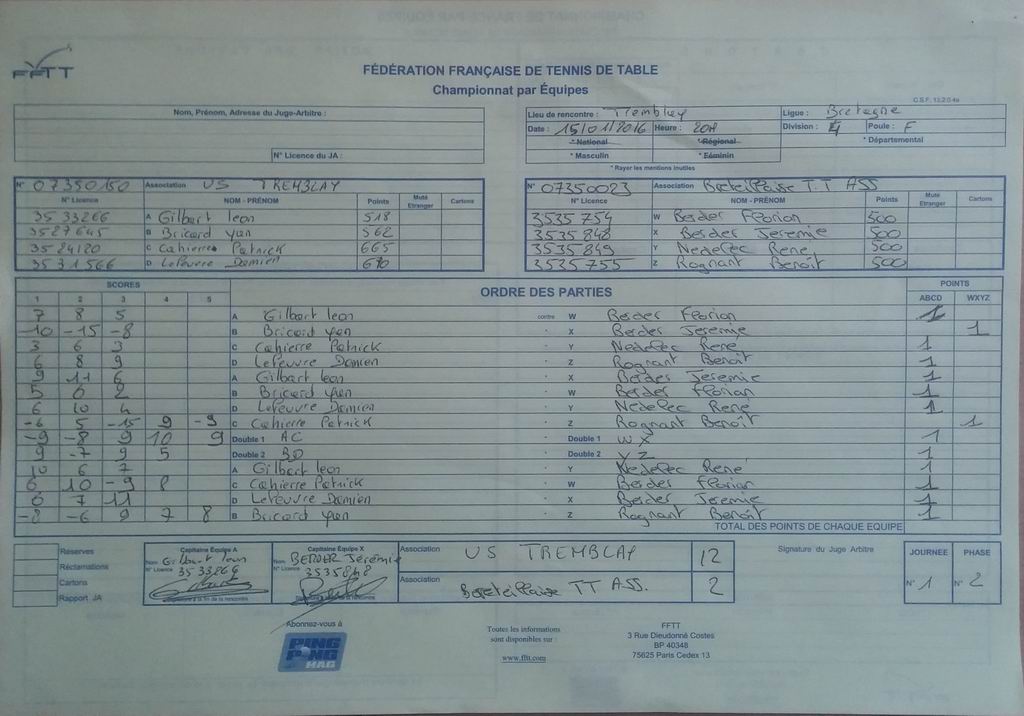 FFTT
FÉDÉRATION FRANÇAISE DE TENNIS DE TABLE
Championnat par Équipes
C.S.F. 13.2.0.4a
Nom, Prénom, Adresse du Juge-Arbitre :
N° Licence du JA :
Lieu de rencontre : Tremblay Ligue : Bretagne
Date : 15/01/2016 Heure : 20H Division : Poule : F
* National * Régional * Départemental
* Masculin * Féminin
* Rayer les mentions inutiles
N° 07350150 Association US TREMBLAY
N° Licence NOM - PRÉNOM Points Muté Etranger Cartons
3533266 A Gilbert leon 518
3527645 B Bricard yan 562
3524120 C Cahierre Patrick 665
3531566 D Lefeuvre Damien 670
N° 07350023 Association Breteillaise T.T ASS
N° Licence NOM - PRÉNOM Points Muté Etranger Cartons
3535754 W Berder Florian 500
3535848 X Berder Jeremie 500
3535849 Y Nedelec René 500
3535755 Z Rognant Benoît 500
SCORES ORDRE DES PARTIES POINTS
1 2 3 4 5 ABCD WXYZ
7 8 5 A Gilbert leon contre W Berder Florian 1
-10 -15 -8 B Bricard yan X Berder Jeremie 1
3 6 3 C Cahierre Patrick Y Nedelec René 1
6 8 9 D Lefeuvre Damien Z Rognant Benoît 1
9 11 6 A Gilbert leon X Berder Jeremie 1
5 6 2 B Bricard yan W Berder Florian 1
6 10 4 D Lefeuvre Damien Y Nedelec René 1
-6 5 -15 9 -9 C Cahierre Patrick Z Rognant Benoît 1
-9 -8 9 10 9 Double 1 AC Double 1 WX 1
9 -7 9 5 Double 2 BD Double 2 YZ 1
10 6 7 A Gilbert leon Y Nedelec René 1
6 10 -9 8 C Cahierre Patrick W Berder Florian 1
6 7 11 D Lefeuvre Damien X Berder Jeremie 1
-8 -6 9 7 8 B Bricard yan Z Rognant Benoît 1
TOTAL DES POINTS DE CHAQUE EQUIPE
Réserves
Réclamations
Cartons
Rapport JA
Capitaine Equipe A
Nom Gilbert leon
N° Licence 3533266
Capitaine Equipe X
Nom BERDER Jérémie
N° Licence 3535848
Association US TREMBLAY 12
Association Breteillaise TT ASS. 2
Signature du Juge Arbitre
JOURNEE PHASE
N° 1 N° 2
Abonnez-vous à
PING PONG MAG
Toutes les informations
sont disponibles sur :
www.fftt.com
FFTT
3 Rue Dieudonné Costes
BP 40348
75625 Paris Cedex 13